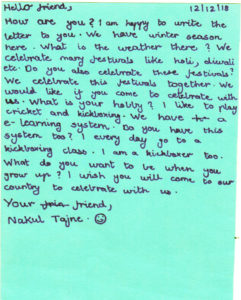 Hello friend,
12/12/18
How are you? I am happy to write the
letter to you. We have winter season
here. What is the weather there? We
celebrate many festivals like holi, diwali
etc. Do you also celebrate these festivals?
We celebrate this festivals together. We
would like if you come to celebrate with
us. What is your hobby? I like to play
cricket and kickboxing. We have a
e-learning system. Do you have this
system too? I every day go to a
kickboxing class. I am a kickboxer too.
What do you want to be when you
grow up? I wish you will come to our
country to celebrate with us.
Your friend,
Nakul Tajne.